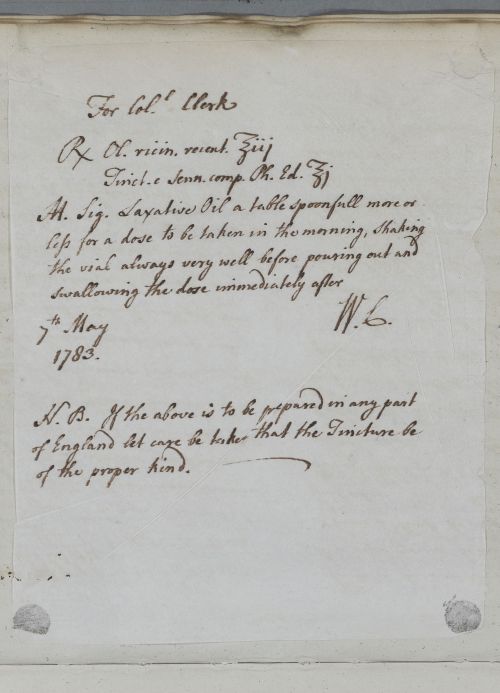 For Col.l Clerk
℞ Ol. ricin. recent. ℥iij
Tinct. e Senn. comp. Ph. Ed. ℥j
M. Sig. Laxative Oil a table spoonfull more or
less for a dose to be taken in the morning, shaking
the vial always very well before pouring out and
swallowing the dose immediately after
W. C.
7th May
1783.
N. B. If the above is to be prepared in any part
of England let care be taken that the Tincture be
of the proper kind.